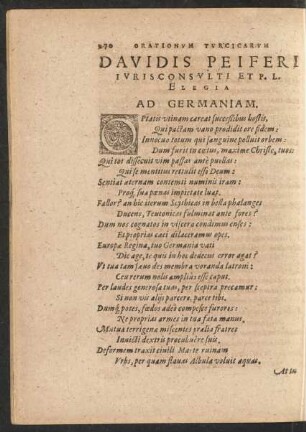 270 ORATIONVM TVRCICARVM
DAVIDIS PEIFERI
IVRISCONSVLTI ET P. L.
ELEGIA
AD GERMANIAM.
OPtatis vtinam careat successibus hostis,
Qui pactam vano prodidit ore fidem:
Innocuo totum qui sanguine polluit orbem:
Dum furit in cœtus, maxime Christe, tuos:
Qui tot dissecuit vim passas antè puellas:
Qui se mentitus retulit esse Deum:
Sentiat aeternam contemti numinis iram:
Proq; sua pœnas impietate luat.
Fallor? an hic iterum Scythicas in bella phalanges
Ducens, Teutonicas fulminat ante fores?
Dum nos cognatos in viscera condimus enses:
Et proprias caeci dilaceramus opes.
Europæ Regina, tuo Germania vati
Dic age, te quis in hoc deuicus error agat?
Vt tua tam sæuo des membra voranda latroni:
Ceu rerum nolis amplius esse caput.
Per laudes generosa tuas, per sceptra precamur:
Si non vis alijs parcere, parce tibi.
Dumq; potes, fœdos adeò compesce furores:
Ne proprias armes in tua fata manus.
Mutua terrigenæ miscentes prælia fratres
Inuicti dextris procubuêre suis.
Deformem traxit ciuili Marte ruinam
Vrbs, per quam flauas Albula voluit aquas.